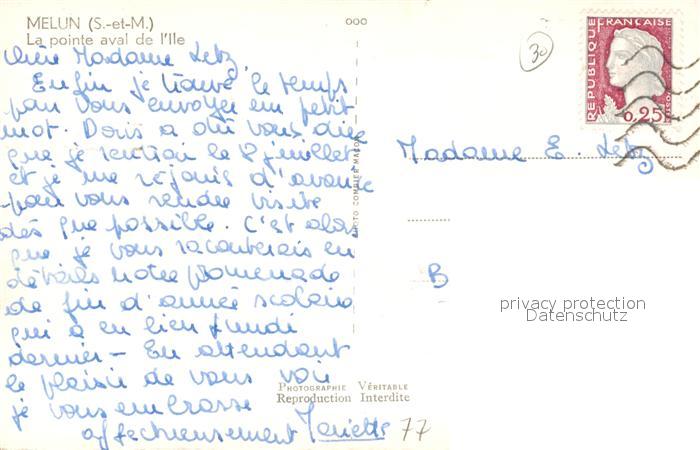 MELUN (S.-et-M.)
La pointe aval de l'Ile
ooo
30
REPUBLIQUE FRANÇAISE
0,25
Chère Madame Letz,
Enfin je trouve le temps
pour vous envoyer un petit
mot. Doris a dû vous dire
que je rentrion le 8 juillet
et je me réjouis d'avance
pour vous rendre visite
dès que possible. C'est alors
que je vous raconterais en
détails notre promenade
de fin d'année scolaire
qui a eu lieu lundi
dernier - En attendant
le plaisir de vous voir
je vous embrasse
affectueusement Mariette
77
PHOTO COMBIER MACON
Madame E. Letz
B
privacy protection
Datenschutz
Photographie Véritable
Reproduction Interdite